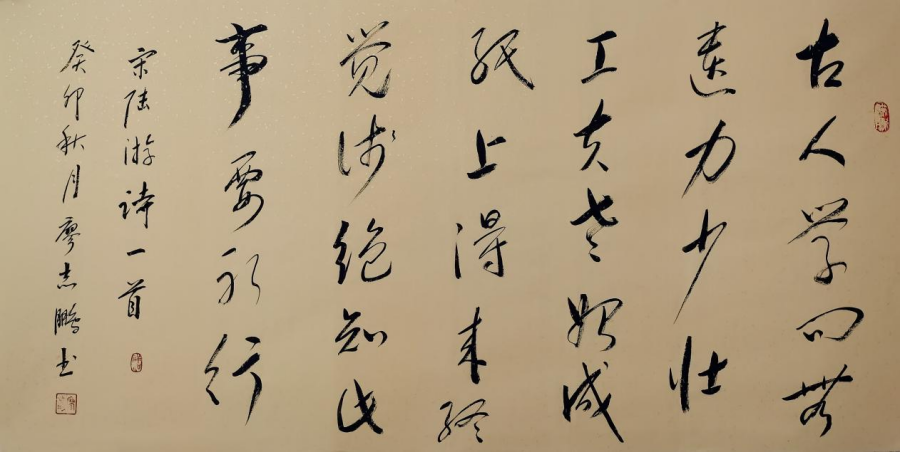 古人学问無
遗力少壮
工夫老始成
纸上得来终
觉浅绝知此
事要躬行
宋陆游诗一首
癸卯秋月廖志鹏书